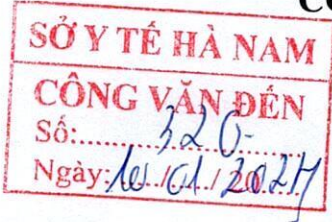 SỞ Y TẾ HÀ NAM
CÔNG VĂN ĐẾN
Số:.......320
Ngày: 10/01/2024